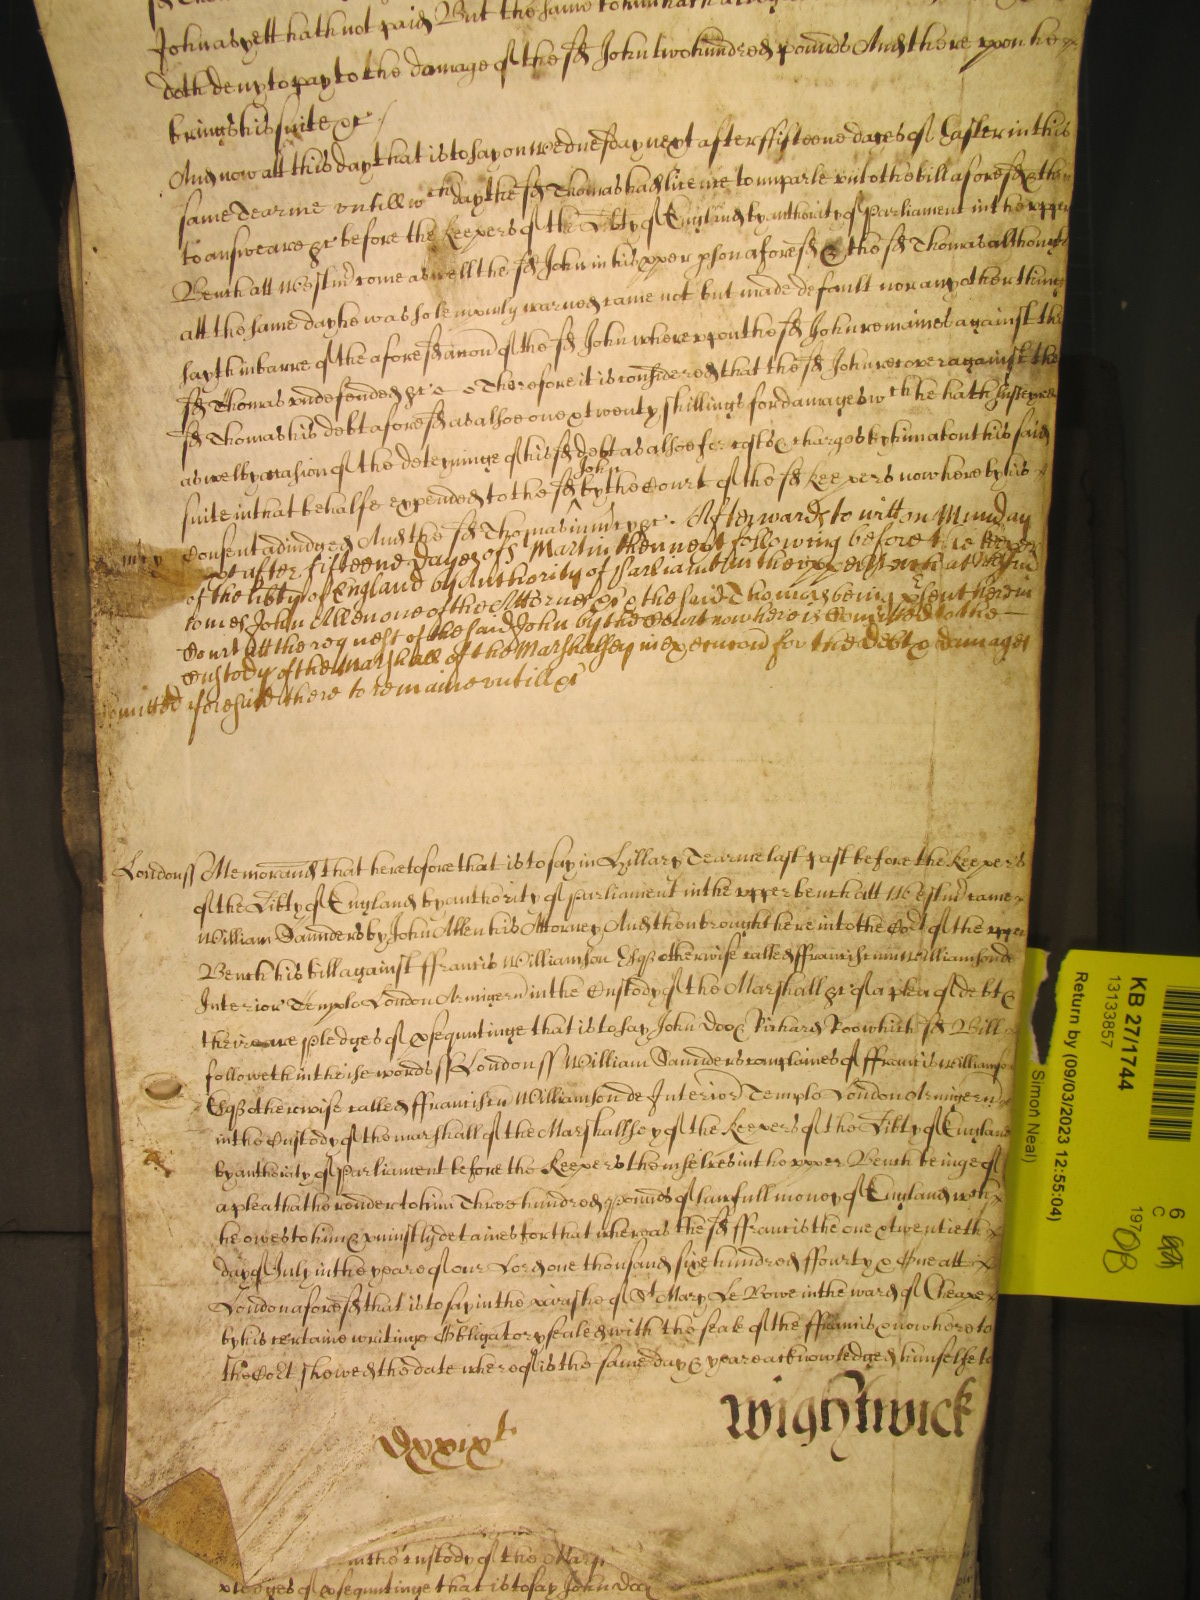 John as yett hath not paid But the same to him hath
doth deny to pay to the damage of the sd John two hundred pounds And there upon he
brings his suite &c
And now att this day that is to say on wednesday next after ffifteene dayes of Easter in this
same Tearme untill wch day the sd Thomas had licence to imparle unto the bill aforesd & then
to answeare &c before the Keepers of the Libty of England by authority of Parliament in the upper
Bench att Westmr come aswell the sd John in his pper pson aforesd & the sd Thomas although
att the same day he was solemnly warned came not but made default nor any other thing
sayth in barre of the aforesd accon of the sd John whereupon the sd John remaines against the
sd Thomas undefended &c Therefore it is considered that the sd John recover against the
sd Thomas his debt aforesd as alsoe one & twenty shillings for damages wch he hath susteyned
aswell by occasion of the deteyninge of his sd debt as alsoe for costs & charges by him about his said
suite in that behalfe expended to the sd John by the Court of the sd Keepers now here by his
consent adiudged And the sd Thomas in mcy &c. Afterwards to witt on Munday
mcy
next after fifteene dayes of St Martin then next following before the Keeprs
of the libty of England by Authority of Parliamt in the upper Bench at Westmr
comes John Allen one of the Attorneys &c & the said Thomas being psent here in
Court att the request of the said John by the Court now here is Comitted to the
Custody of the Marshall of the Marshalsey in execucon for the debt & damages
Comitted aforesaid there to remaine untill &c
London ss Memorand that heretofore that is to say in Hillary Tearme last past before the Keepers
of the Libty of England by authority of Parliament in the upper bench att Westmr came
William Saunders by John Allen his Attorney And then brought here into the Cort of the upper
Bench his bill against ffrancis Williamson Esqr otherwise called ffranciscum Williamson de
Interior Templo London Armigerum in the Custody of the Marshall &c of a plea of debt &
there are pledges of psequutinge that is to say John Doo & Richard Roo which sd Bill
followeth in these words ss London ss William Saunders complaines of ffrancis Williamson
Esqr otherwise called ffranciscu Williamson de Interior Templo London Armigerum
in the Custody of the marshall of the Marshallsey of the Keepers of the Libty of England
by authority of Parliament before the Keepers themselves in the upper Bench beinge of
a plea that he render to him Three hundred pounds of lawfull money of England wch
he owes to him & uniustly detaines for that whereas the sd ffrancis the one & twentieth
day of July in the yeare of our Lord one thousand sixe hundred ffourty & One att
London aforesd that is to say in the parishe of St Mary Le Bowe in the ward of Cheape
by his certaine writinge Obligatory sealed with the seale of the ffrancis & now here to
the Cort shewed the date whereof is the same day & yeare acknowledged himselfe to
Wightwick
Dxxixt
in the custody of the Mars
pledges of psequutinge that is to say John Doo
KB 27/1744
13133857
Return by (09/03/2023 12:55:04)
Simon Neal)
6
C